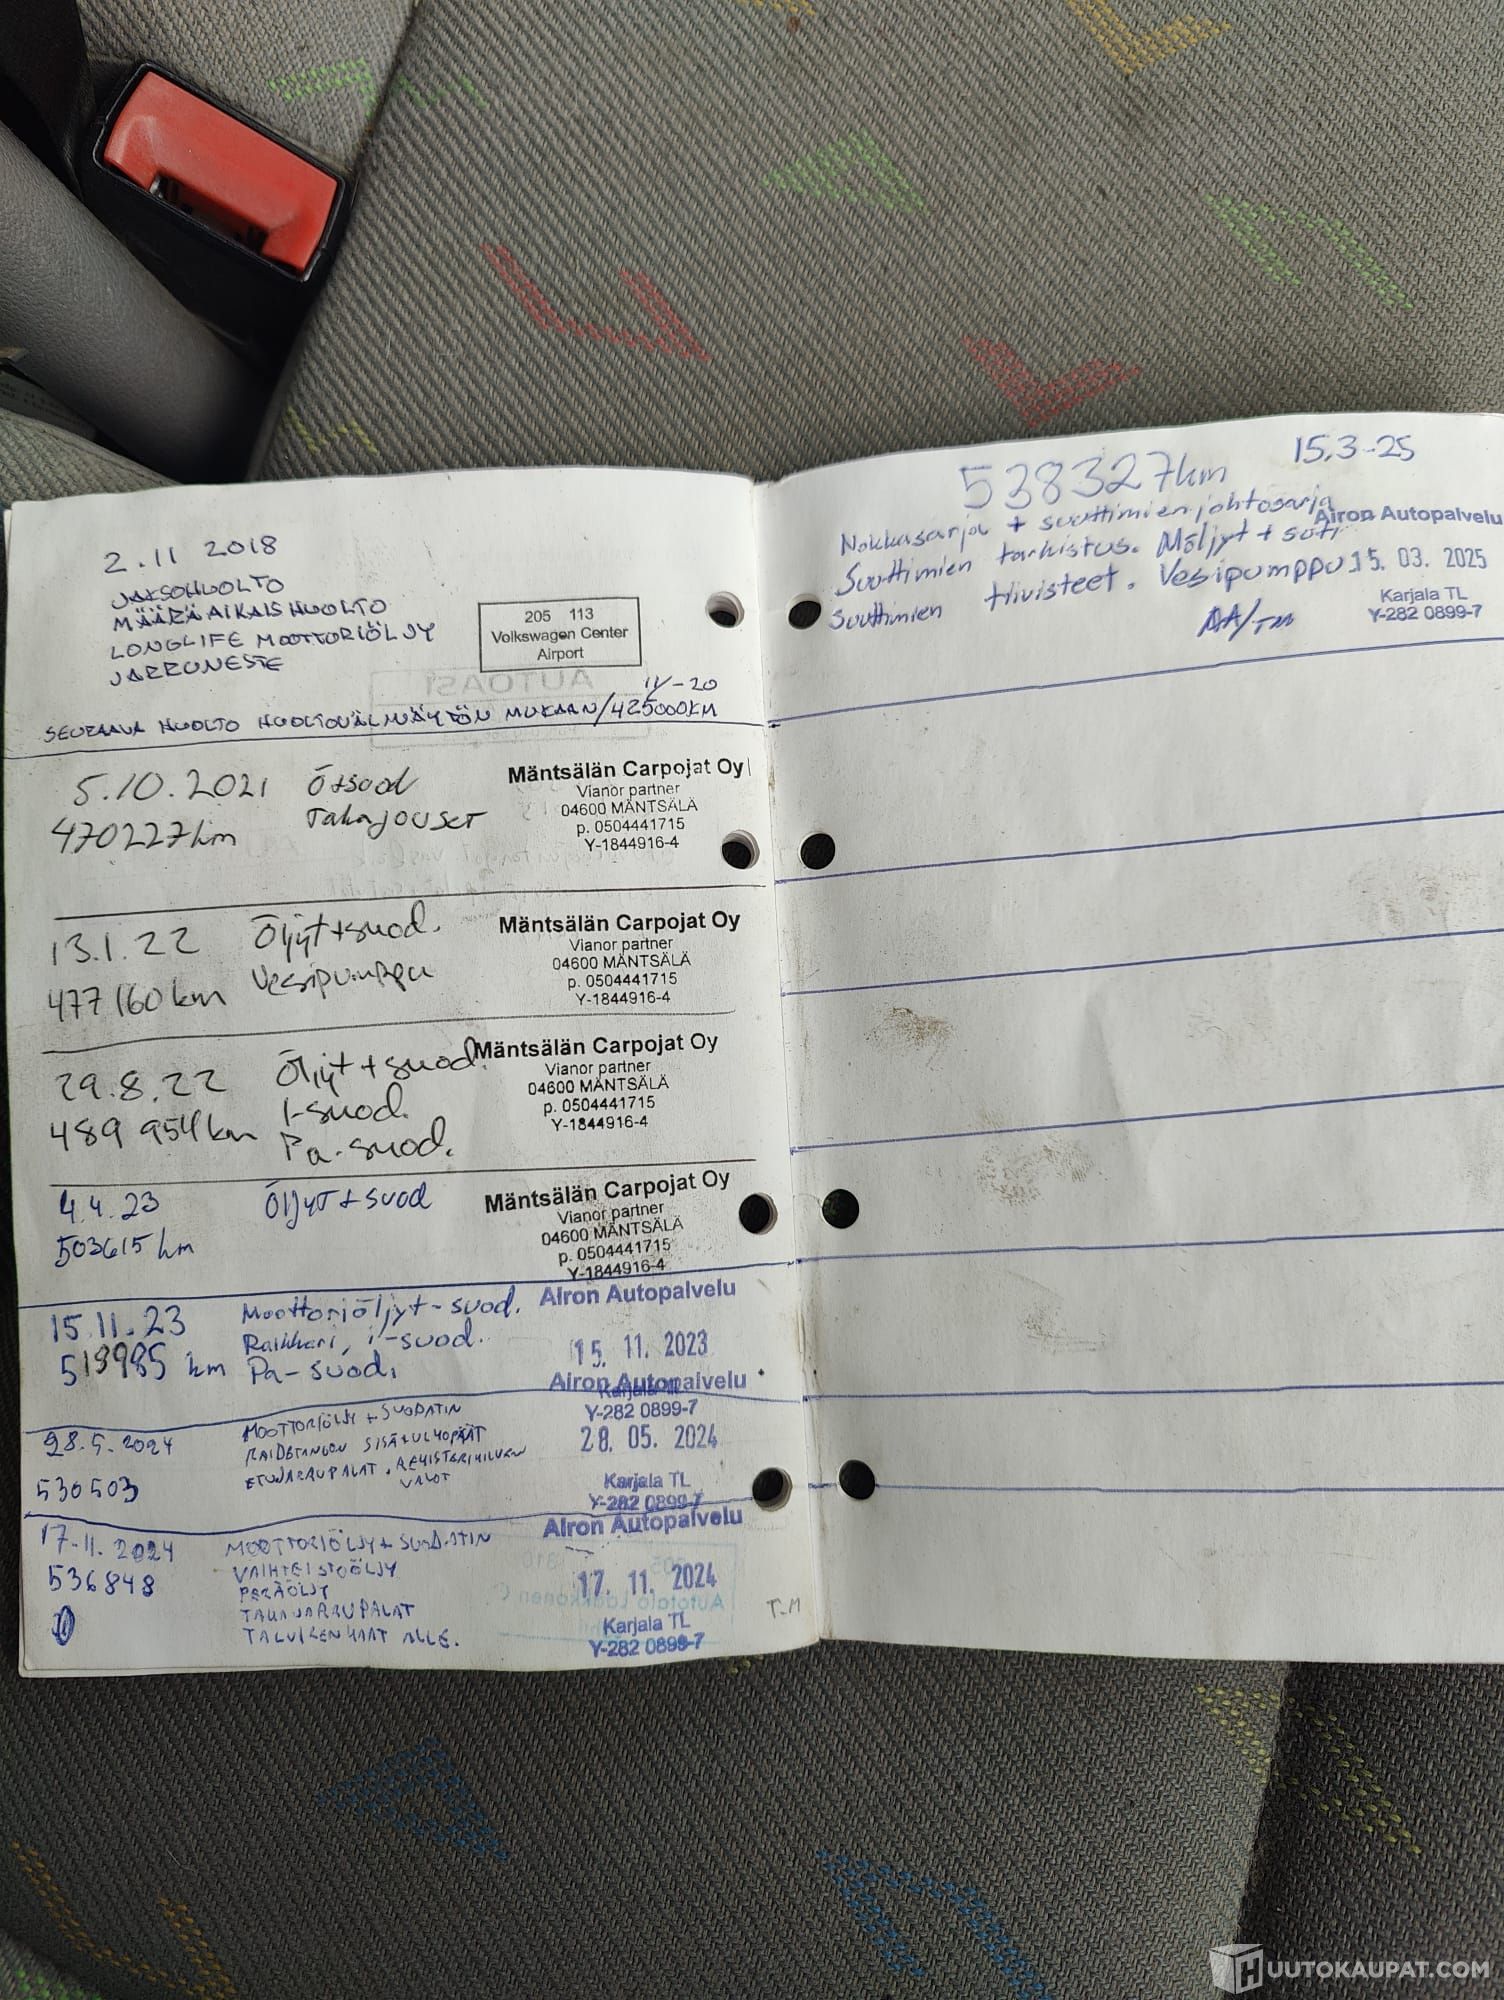 2.11 2018
JAKSOHUOLTO
MÄÄRÄAIKAISHUOLTO
LONGLIFE MOOTTORIÖLJY
JARRUNESTE
205 113
Volkswagen Center
Airport
AUTOASI
11/-20
SEURAAVA HUOLTO HUOLTOVÄLINÄYTÖN MUKAAN/425000KM
5.10.2021 Ö+suod
470227km Takajouset
Mäntsälän Carpojat Oy
Vianor partner
04600 MÄNTSÄLÄ
p. 0504441715
Y-1844916-4
13.1.22 Öljyt+suod.
477160km Vesipumppu
Mäntsälän Carpojat Oy
Vianor partner
04600 MÄNTSÄLÄ
p. 0504441715
Y-1844916-4
29.8.22 Öljyt+suod.
489 954km I-suod.
Pa-suod.
Mäntsälän Carpojat Oy
Vianor partner
04600 MÄNTSÄLÄ
p. 0504441715
Y-1844916-4
4.4.23 Öljyt+suod
503615 km
Mäntsälän Carpojat Oy
Vianor partner
04600 MÄNTSÄLÄ
p. 0504441715
Y-1844916-4
15.11.23 Moottoriöljyt-suod.
Raikkari, i-suod.
519985 km Pa-suod.
Airon Autopalvelu
15. 11. 2023
Karjala Tl
Y-282 0899-7
28.5.2024 MOOTTORIÖLJY + SUODATIN
RAIDETANGON SISÄ+ULKOPÄÄT
530503 ETUJARRUPALAT, REKISTERIKILVEN
VALOT
Airon Autopalvelu
28. 05. 2024
Karjala TL
Y-282 0899-7
17.11.2024 MOOTTORIÖLJY+SUODATIN
536848 VAIHTEISTOÖLJY
PERÄÖLJY
TAKAJARRUPALAT
TALVIRENKAAT ALLE.
Airon Autopalvelu
17. 11. 2024
Karjala TL
Y-282 0899-7
T-M
538327km 15.3-25
Nokkasarja + suuttimien johtosarja
Suuttimien tarkistus. Möljyt + suti
Suuttimien tiivisteet. Vesipumppu
AA/TM
Airon Autopalvelu
15. 03. 2025
Karjala TL
Y-282 0899-7
HUUTOKAUPAT.COM